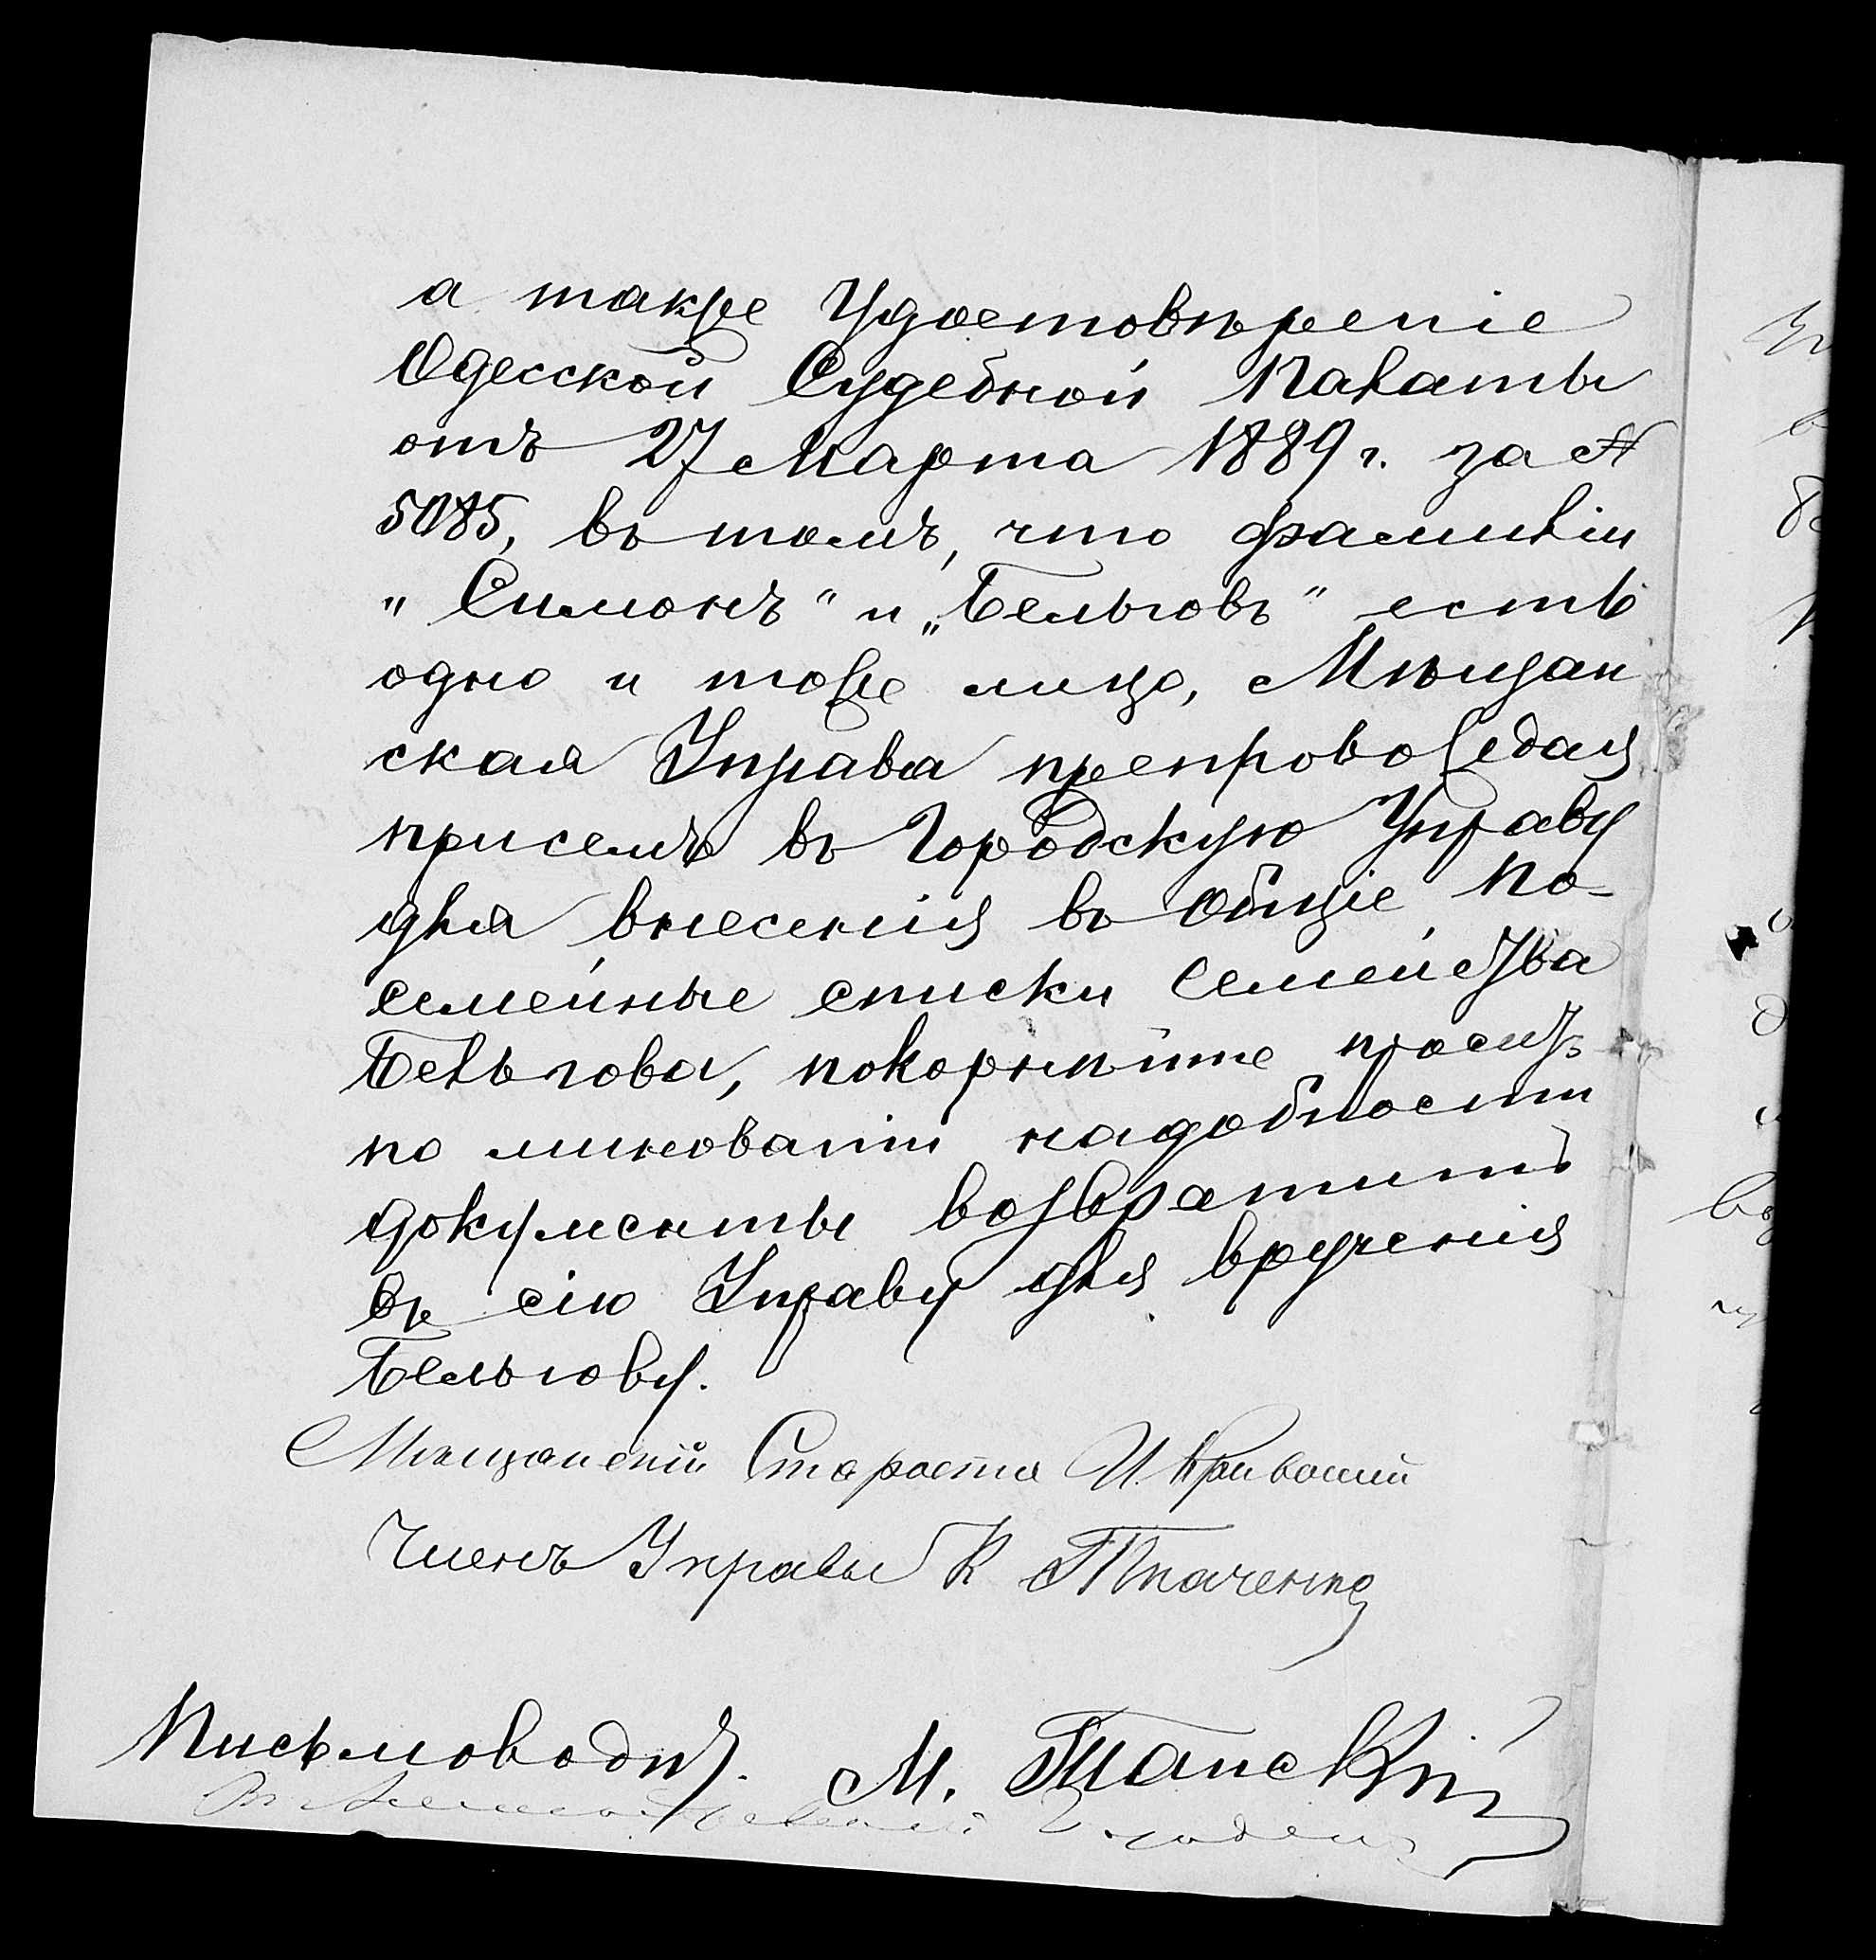 а также Удостовѣреніе
Одесской Судебной Палаты
отъ 27 Марта 1889 г. за №
5085, въ томъ, что фамиліи
„Симонъ“ и „Бельговъ“ есть
одно и тоже лицо, Мѣщан
ская Управа препровождая
присемъ въ Городскую Управу
для внесенія въ общіе по-
семейные списки семейства
Бельгова, покорнѣйше проситъ
по минованіи надобности
документы возвратить
въ сію Управу для врученія
Бельгову.
Мѣщанскій Староста И.
Членъ Управы К Ткаченко
Письмоводит. М.